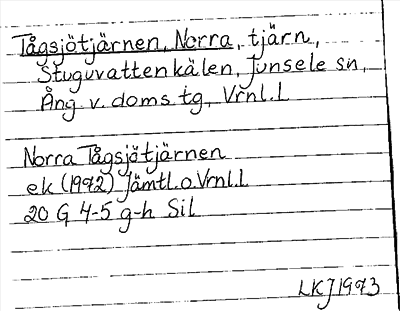 Tågsjötjärnen, Norra, tjärn,
Stuguvattenkälen, Junsele sn,
Ång. v. doms. tg., Vrnl. l
Norra Tågsjötjärnen
ek (1972) Jämtl. o. Vrnl. l.
20 G, 4-5 g-h Sil
LKJ 1973